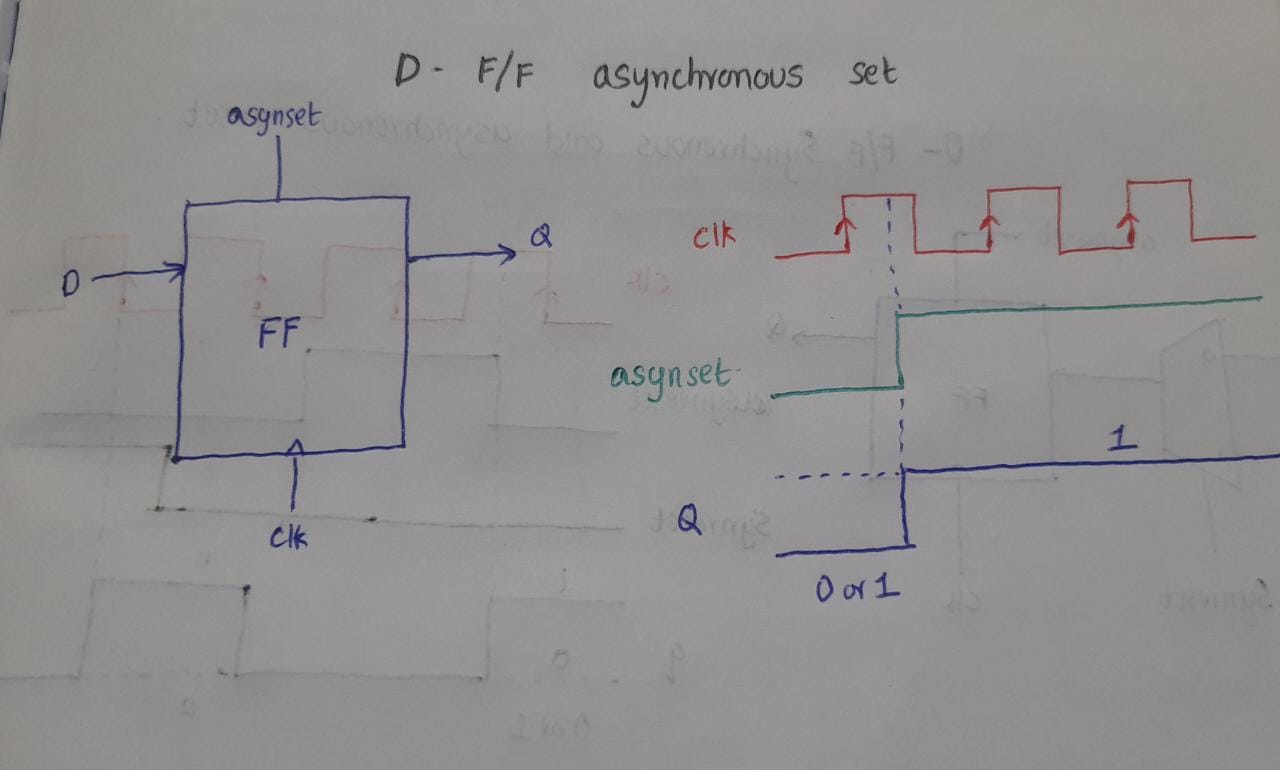 D- F/F asynchronous set
asynset
D
Q
FF
clk
clk
asynset
1
Q
0 or 1